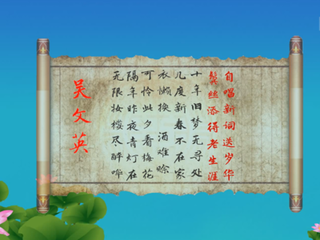 自唱新词送岁华
鬓丝添得老生涯
十年旧梦无寻处
几度新春不在家
衣懒换 酒难赊
可怜此夕看梅花
隔年昨夜青灯在
无限妆楼尽醉哗
吴文英